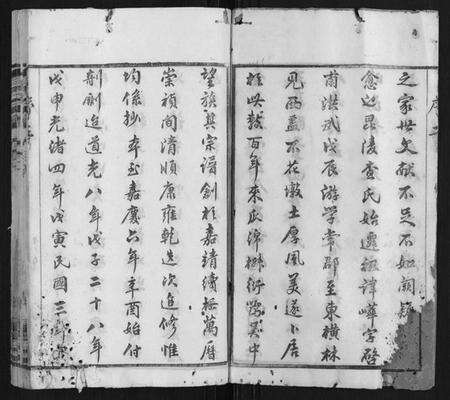 之家世文献不足不如闕疑
愈也毘陵查氏始遷祖諱嶧字啓
前洪武戊辰游學常郡至東橫林
見西蓋下花墩土厚風美遂卜居
於此數百年來瓜綿椒衍蔚爲中
望族其宗譜創於嘉靖續於萬曆
崇禎間清順康雍乾迭次追修惟
均係抄本至嘉慶六年辛酉始付
剞劂迨道光八年戊子二十八年
戊申光緒四年戊寅民國三